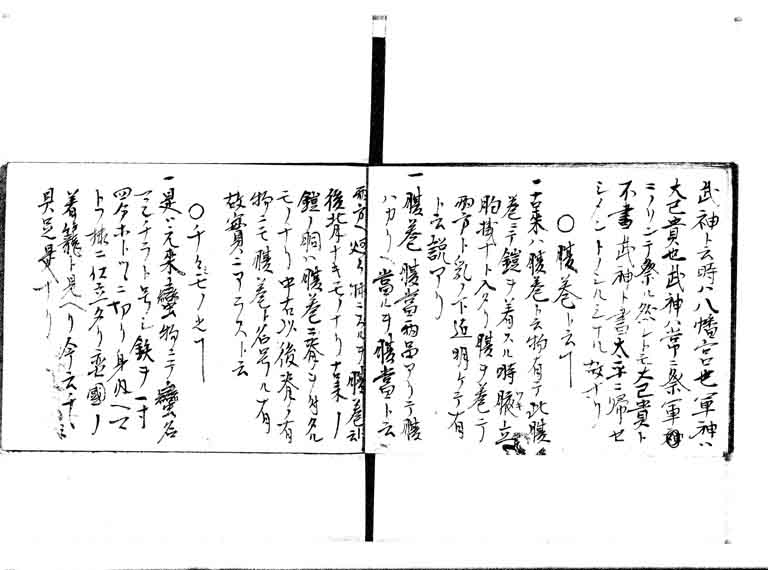 武神ト云時ハ八幡宮也軍神ハ
大己貴也武神ハ常ニ祭軍神
ニノリンテ祭ル然ントモ大己貴ト
不書武神ト書太平ニ帰セ
シメントノシルシナル故ナリ
〇腹巻ト云丁
一古来ハ腹巻ト云物有テ此腹
巻ニテ鎧ヲ着スル時腋立
胸板ナト入タリ腹ヲ巻テ
両方ト乳ノ下迄明ケテ有
ト云説アリ
一腹巻腹當両品アリテ腹
ハカリヘ當ルヲ腹當ト云
両方ヘ廻リ スルヲ腹巻ト云
後背ナキモノナリ古来ノ
鎧ノ胴ハ腹巻ニ脊ヲ付タル
モノナリ中古以後脊ノ有
物ニモ腹巻ト名号ル有
故實ニアラスト云
是ハ元来蠻物ニテ蠻名
マンチラト号シ鉄ヲ一寸
四分ホトツヽニ切リ身
トヲ様ニ仕立タリ蛮國ノ
着籠ト見ヘリ今云
具足是ナリ